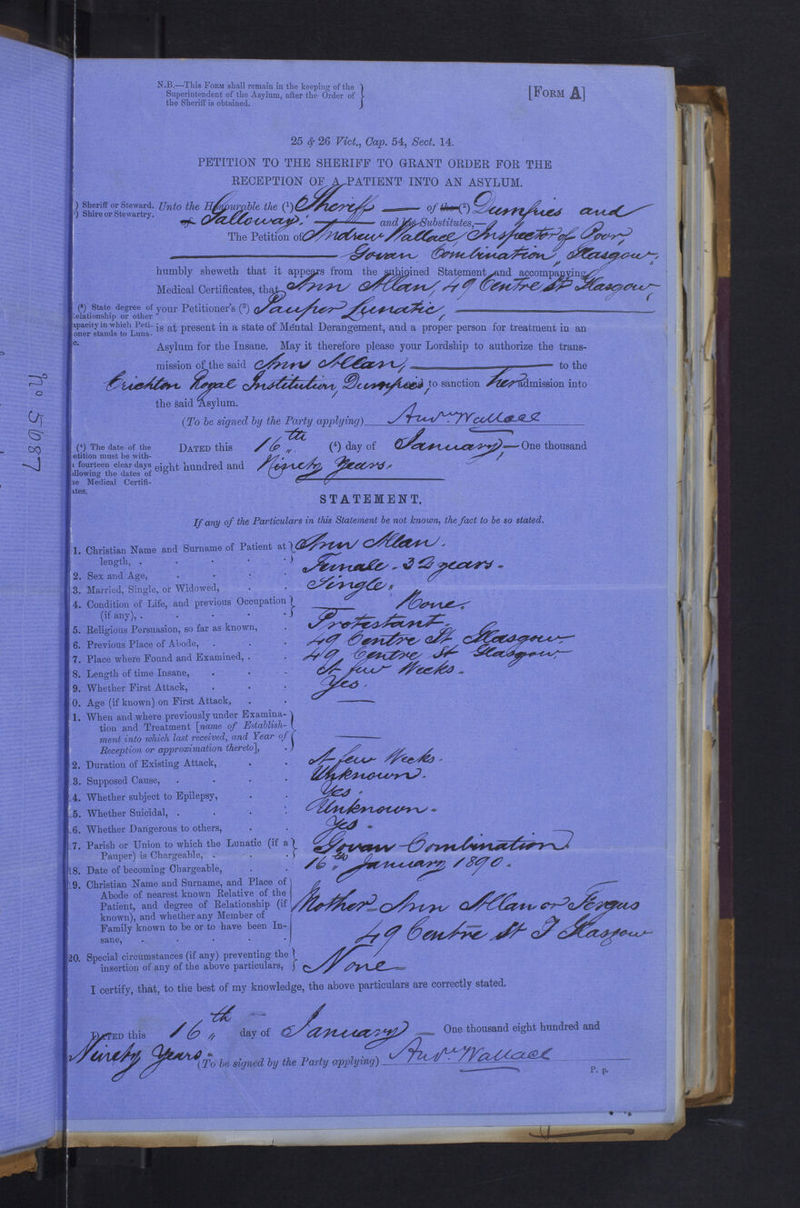 N.B.—This Form shall remain in the keeping of the
Superintendent of the Asylum, after the Order of
the Sheriff is obtained.
[Form A]
25 & 26 Vict., Cap. 54, Sect. 14.
PETITION TO THE SHERIFF TO GRANT ORDER FOR THE
RECEPTION OF A PATIENT INTO AN ASYLUM.
) Sheriff or Steward.
) Shire or Stewartry.
Unto the Honourable the (¹) Sheriff — of the (²) Dumfries and
Galloway — and his Substitutes,—
The Petition of Andrew Wallace, Inspector of Poor,
Govan Combination, Glasgow;
humbly sheweth that it appears from the subjoined Statement and accompanying
Medical Certificates, that Ann Allan, 49 Centre St Glasgow,
(³) State degree of
Relationship or other
apacity in which Peti-
oner stands to Luna-
c.
your Petitioner's (³) Pauper Lunatic,
is at present in a state of Mental Derangement, and a proper person for treatment in an
Asylum for the Insane. May it therefore please your Lordship to authorize the trans-
mission of the said Ann Allan, — to the
Crichton Royal Institution, Dumfries, to sanction her admission into
the said Asylum.
(To be signed by the Party applying) Andw. Wallace
(⁴) The date of the
etition must be with-
n fourteen clear days
ollowing the dates of
he Medical Certifi-
ates.
Dated this 16th (⁴) day of January,— One thousand
eight hundred and Ninety Years.
No 5087
STATEMENT.
If any of the Particulars in this Statement be not known, the fact to be so stated.
1. Christian Name and Surname of Patient at length, . Ann Allan.
2. Sex and Age, Female. 32 years.
3. Married, Single, or Widowed, Single.
4. Condition of Life, and previous Occupation (if any), . None.
5. Religious Persuasion, so far as known, Protestant.
6. Previous Place of Abode, 49 Centre St Glasgow
7. Place where Found and Examined, . 49 Centre St Glasgow
8. Length of time Insane, A few Weeks.
9. Whether First Attack, Yes.
0. Age (if known) on First Attack, —
1. When and where previously under Examina-
tion and Treatment [name of Establish-
ment into which last received, and Year of
Reception or approximation thereto], —
2. Duration of Existing Attack, A few Weeks.
3. Supposed Cause, Unknown.
4. Whether subject to Epilepsy, Yes.
5. Whether Suicidal, . Unknown.
6. Whether Dangerous to others, Yes.
17. Parish or Union to which the Lunatic (if a
Pauper) is Chargeable, . Govan Combination
18. Date of becoming Chargeable, 16th January 1890.
19. Christian Name and Surname, and Place of
Abode of nearest known Relative of the
Patient, and degree of Relationship (if
known), and whether any Member of
Family known to be or to have been In-
sane,
Mother - Ann Allan or Fergus
49 Centre St Glasgow
20. Special circumstances (if any) preventing the
insertion of any of the above particulars, None
I certify, that, to the best of my knowledge, the above particulars are correctly stated.
Dated this 16th day of January — One thousand eight hundred and
Ninety Years.
(To be signed by the Party applying) Andw. Wallace
P. p.